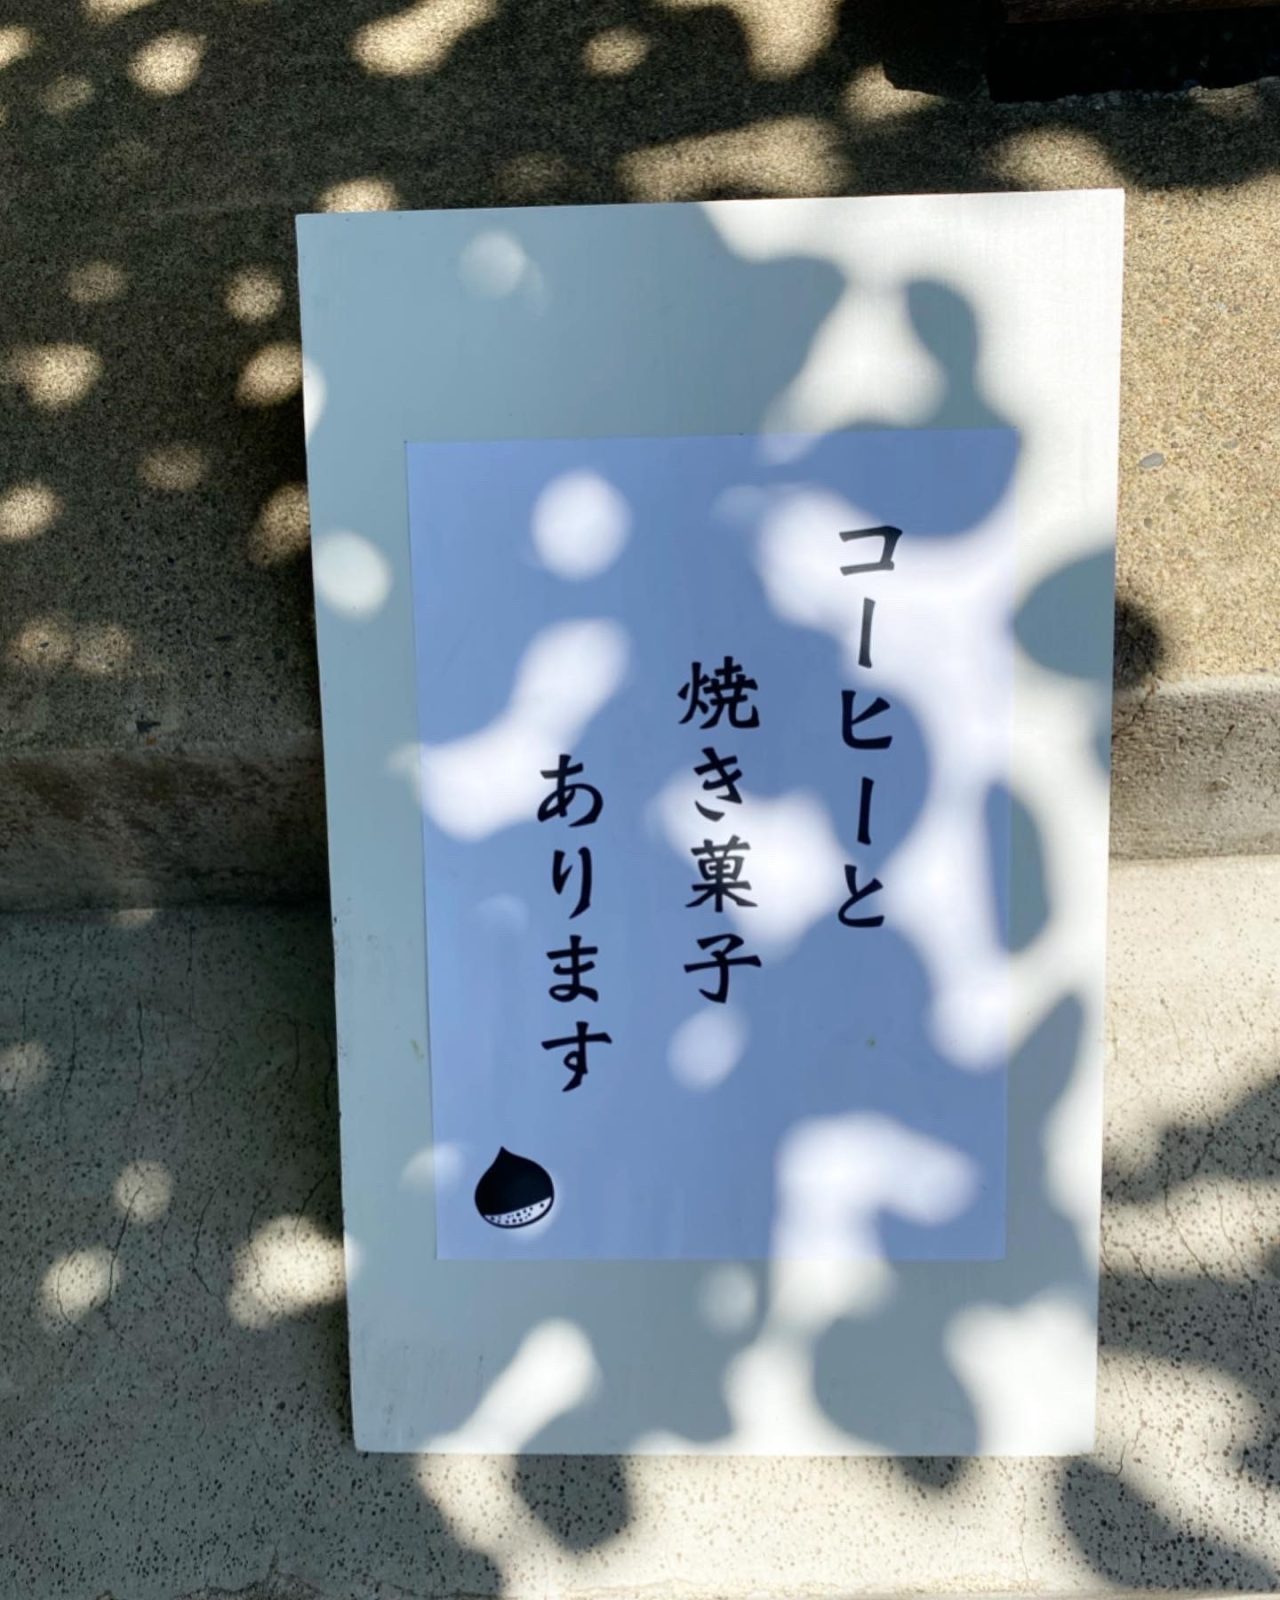 コーヒーと
焼き菓子
あります